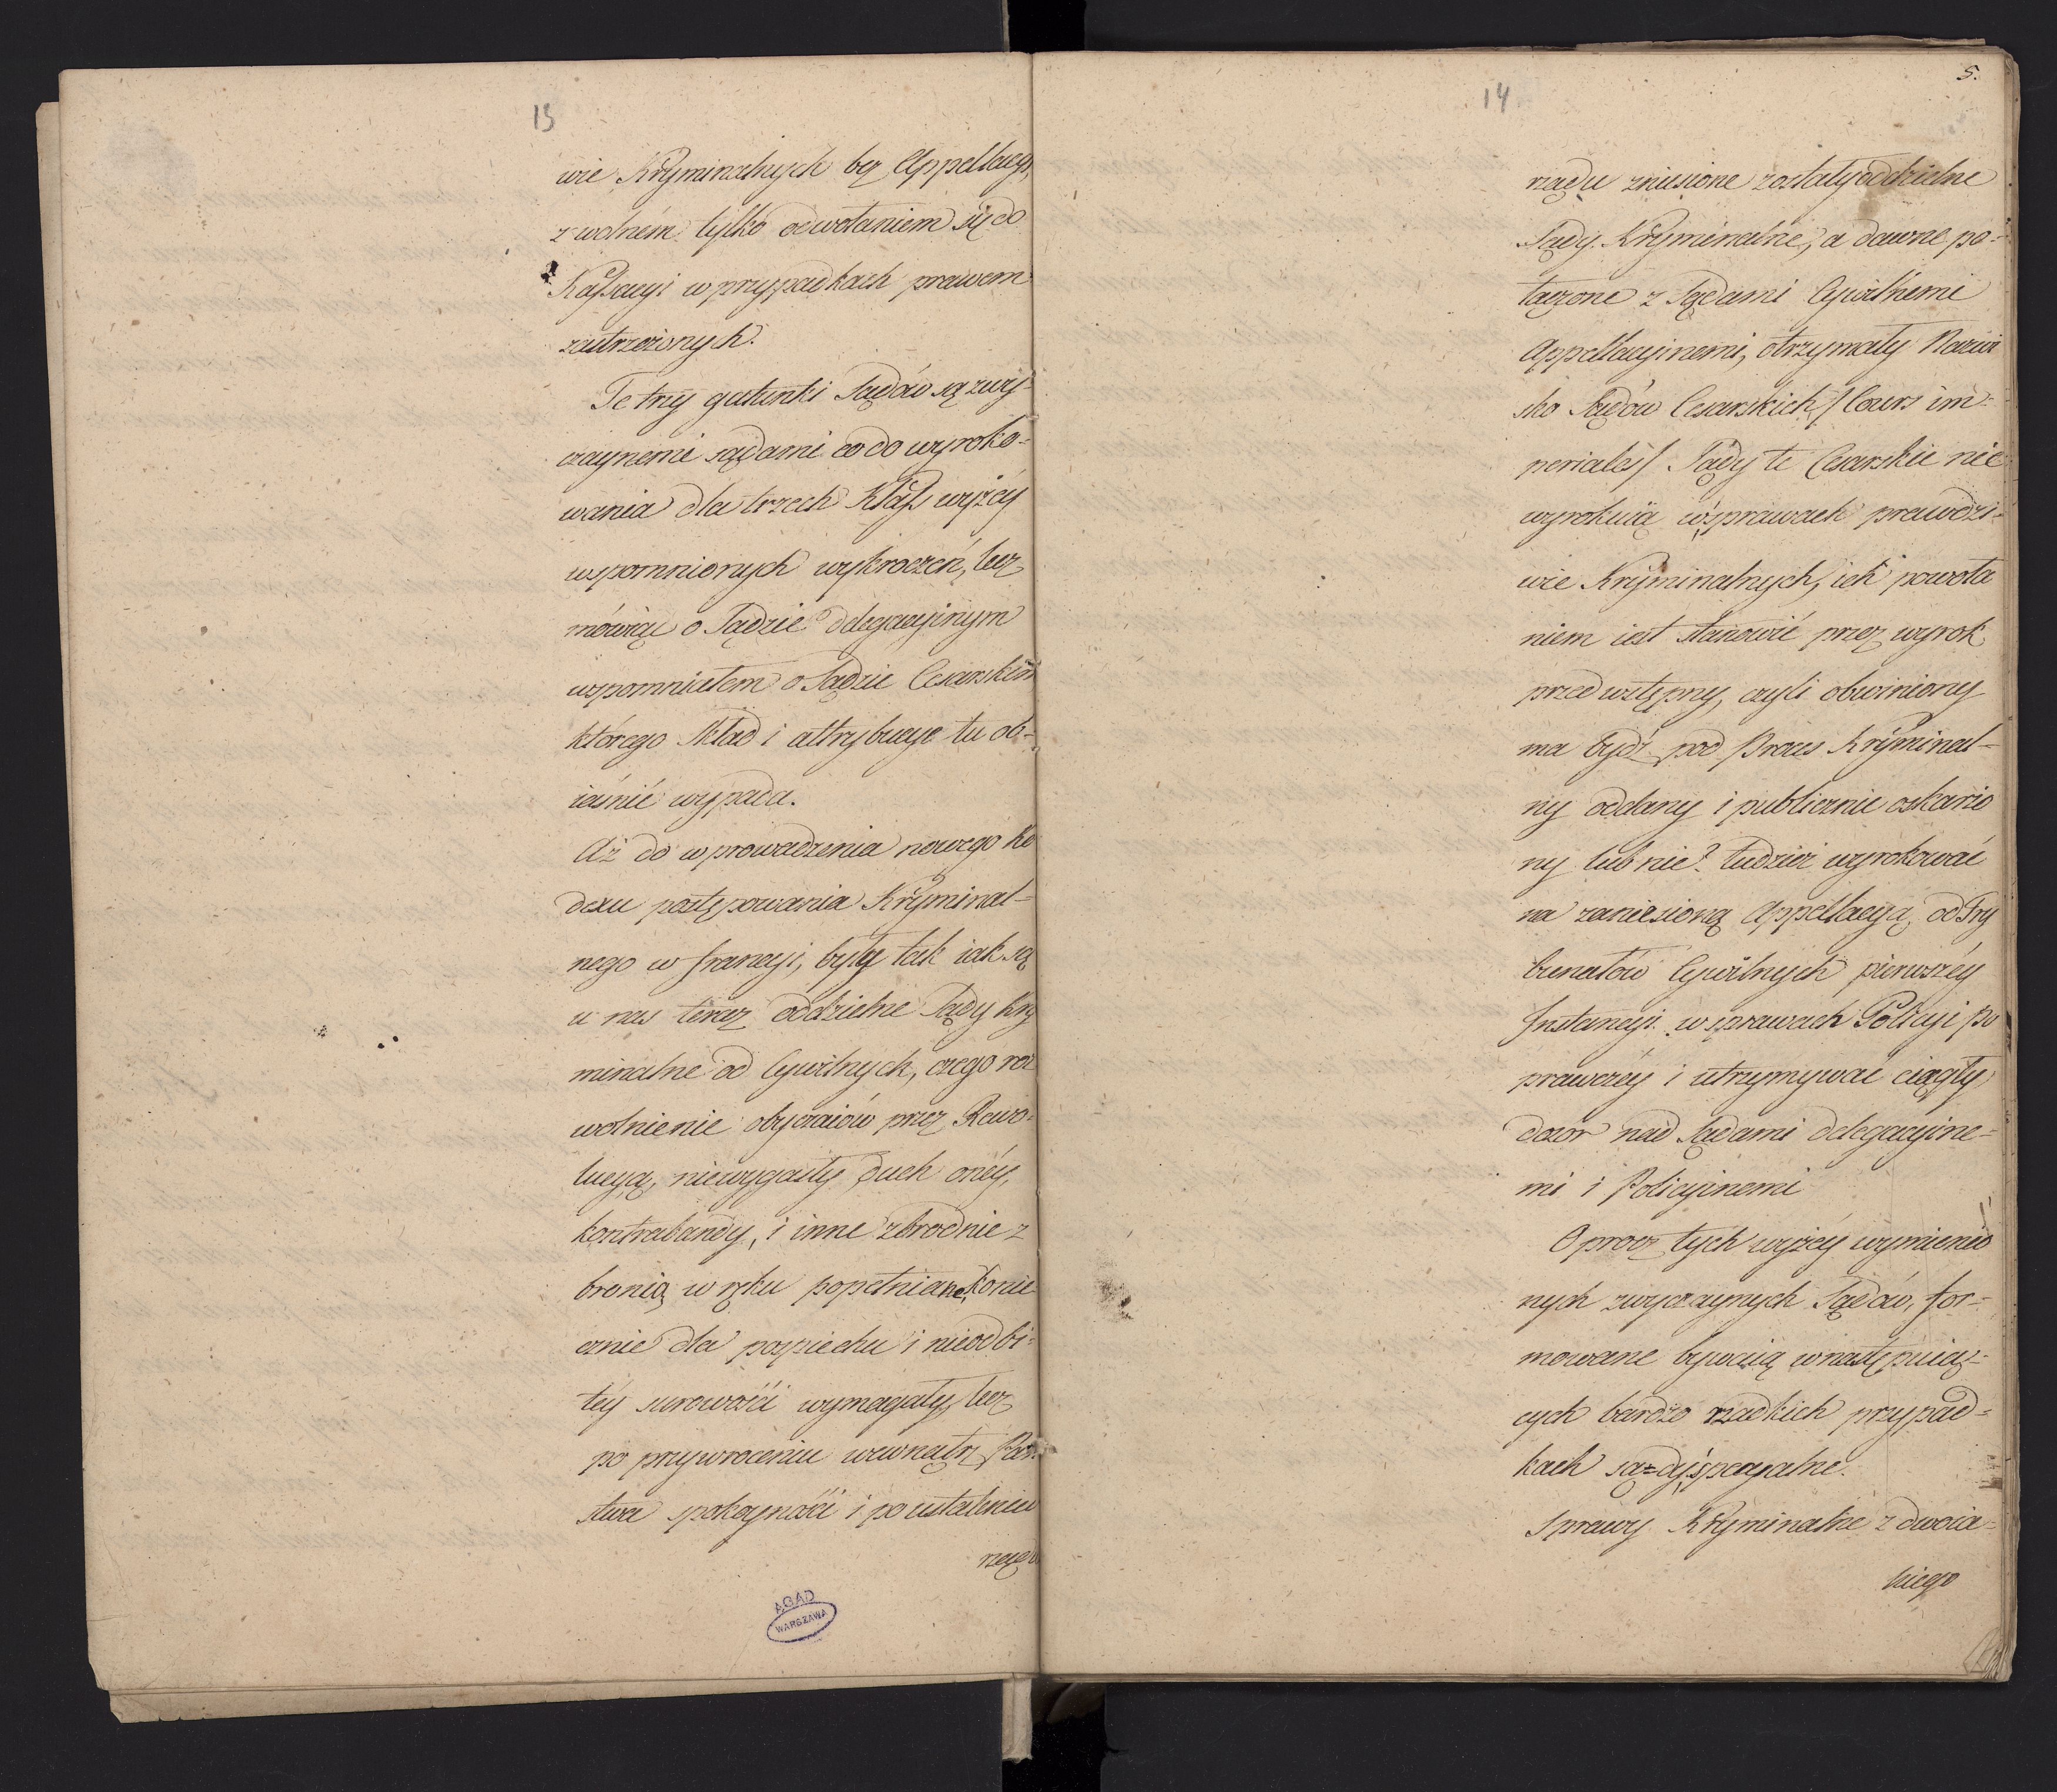 13
wie Kryminalnych bez Appellacyi,
z wolném tylko odwołaniem się do
Kassacyi w przypadkach prawem
zastrzeżonych.
Te trzy gatunki Sądów są zwy-
czaynemi sądami co do wyroko-
wania dla trzech Klass wyżéy
wspomnionych wykroczeń, lecz
mówiąc o Sądzie delegacyinym
wspomniałem o Sądzie Cesarskim
którego Skład i attrybucye tu ob-
iaśnić wypada.
Aż do wprowadzenia nowego Ko
dexu postępowania Kryminal-
nego w francyi, były tak iak są
u nas teraz oddzielne Sądy kry
minalne od Cywilnych, czego roz
wolnienie obyczaiów przez Rewo-
lucyą, niewygasły duch onéy,
kontrabandy, i inne zbrodnie z
bronią w ręku popełniane, konie
cznie dla pospiechu i nieodbi-
téy surowości wymagały, lecz
po przywroceniu wewnątrz Pań-
stwa spokoyności i po ustaleniu
rządu
AGAD
WARSZAWA
14
5.
rządu zniesione zostały oddzielne
Sądy Kryminalne, a dawne po-
łączone z Sądami Cywilnemi
Appellacyinemi, otrzymały Nazwi
sko Sądów Cesarskich /Cours im-
periales/ Sądy te Cesarskie nie
wyrokuią w sprawach prawdzi-
wie Kryminalnych, ich powoła
niem iest stanowić przez wyrok
przedwstępny, czyli obwiniony
ma bydź pod Proces Kryminal-
ny oddany i publicznie oskarżo
ny lub nie? tudzież wyrokować
na zaniesioną Appellacyą od Try
bunałów Cywilnych pierwszéy
Instancyi w sprawach Policyi po
prawczéy i utrzymywać ciągły
dozor nad Sądami delegacyine-
mi i Policyinemi
Oprocz tych wyżéy wymienio
nych zwyczaynych Sądów, for-
mowane bywaią w następuią-
cych bardzo rzadkich przypad-
kach sądy specyalne.
Sprawy Kryminalne z dwoia-
kiego